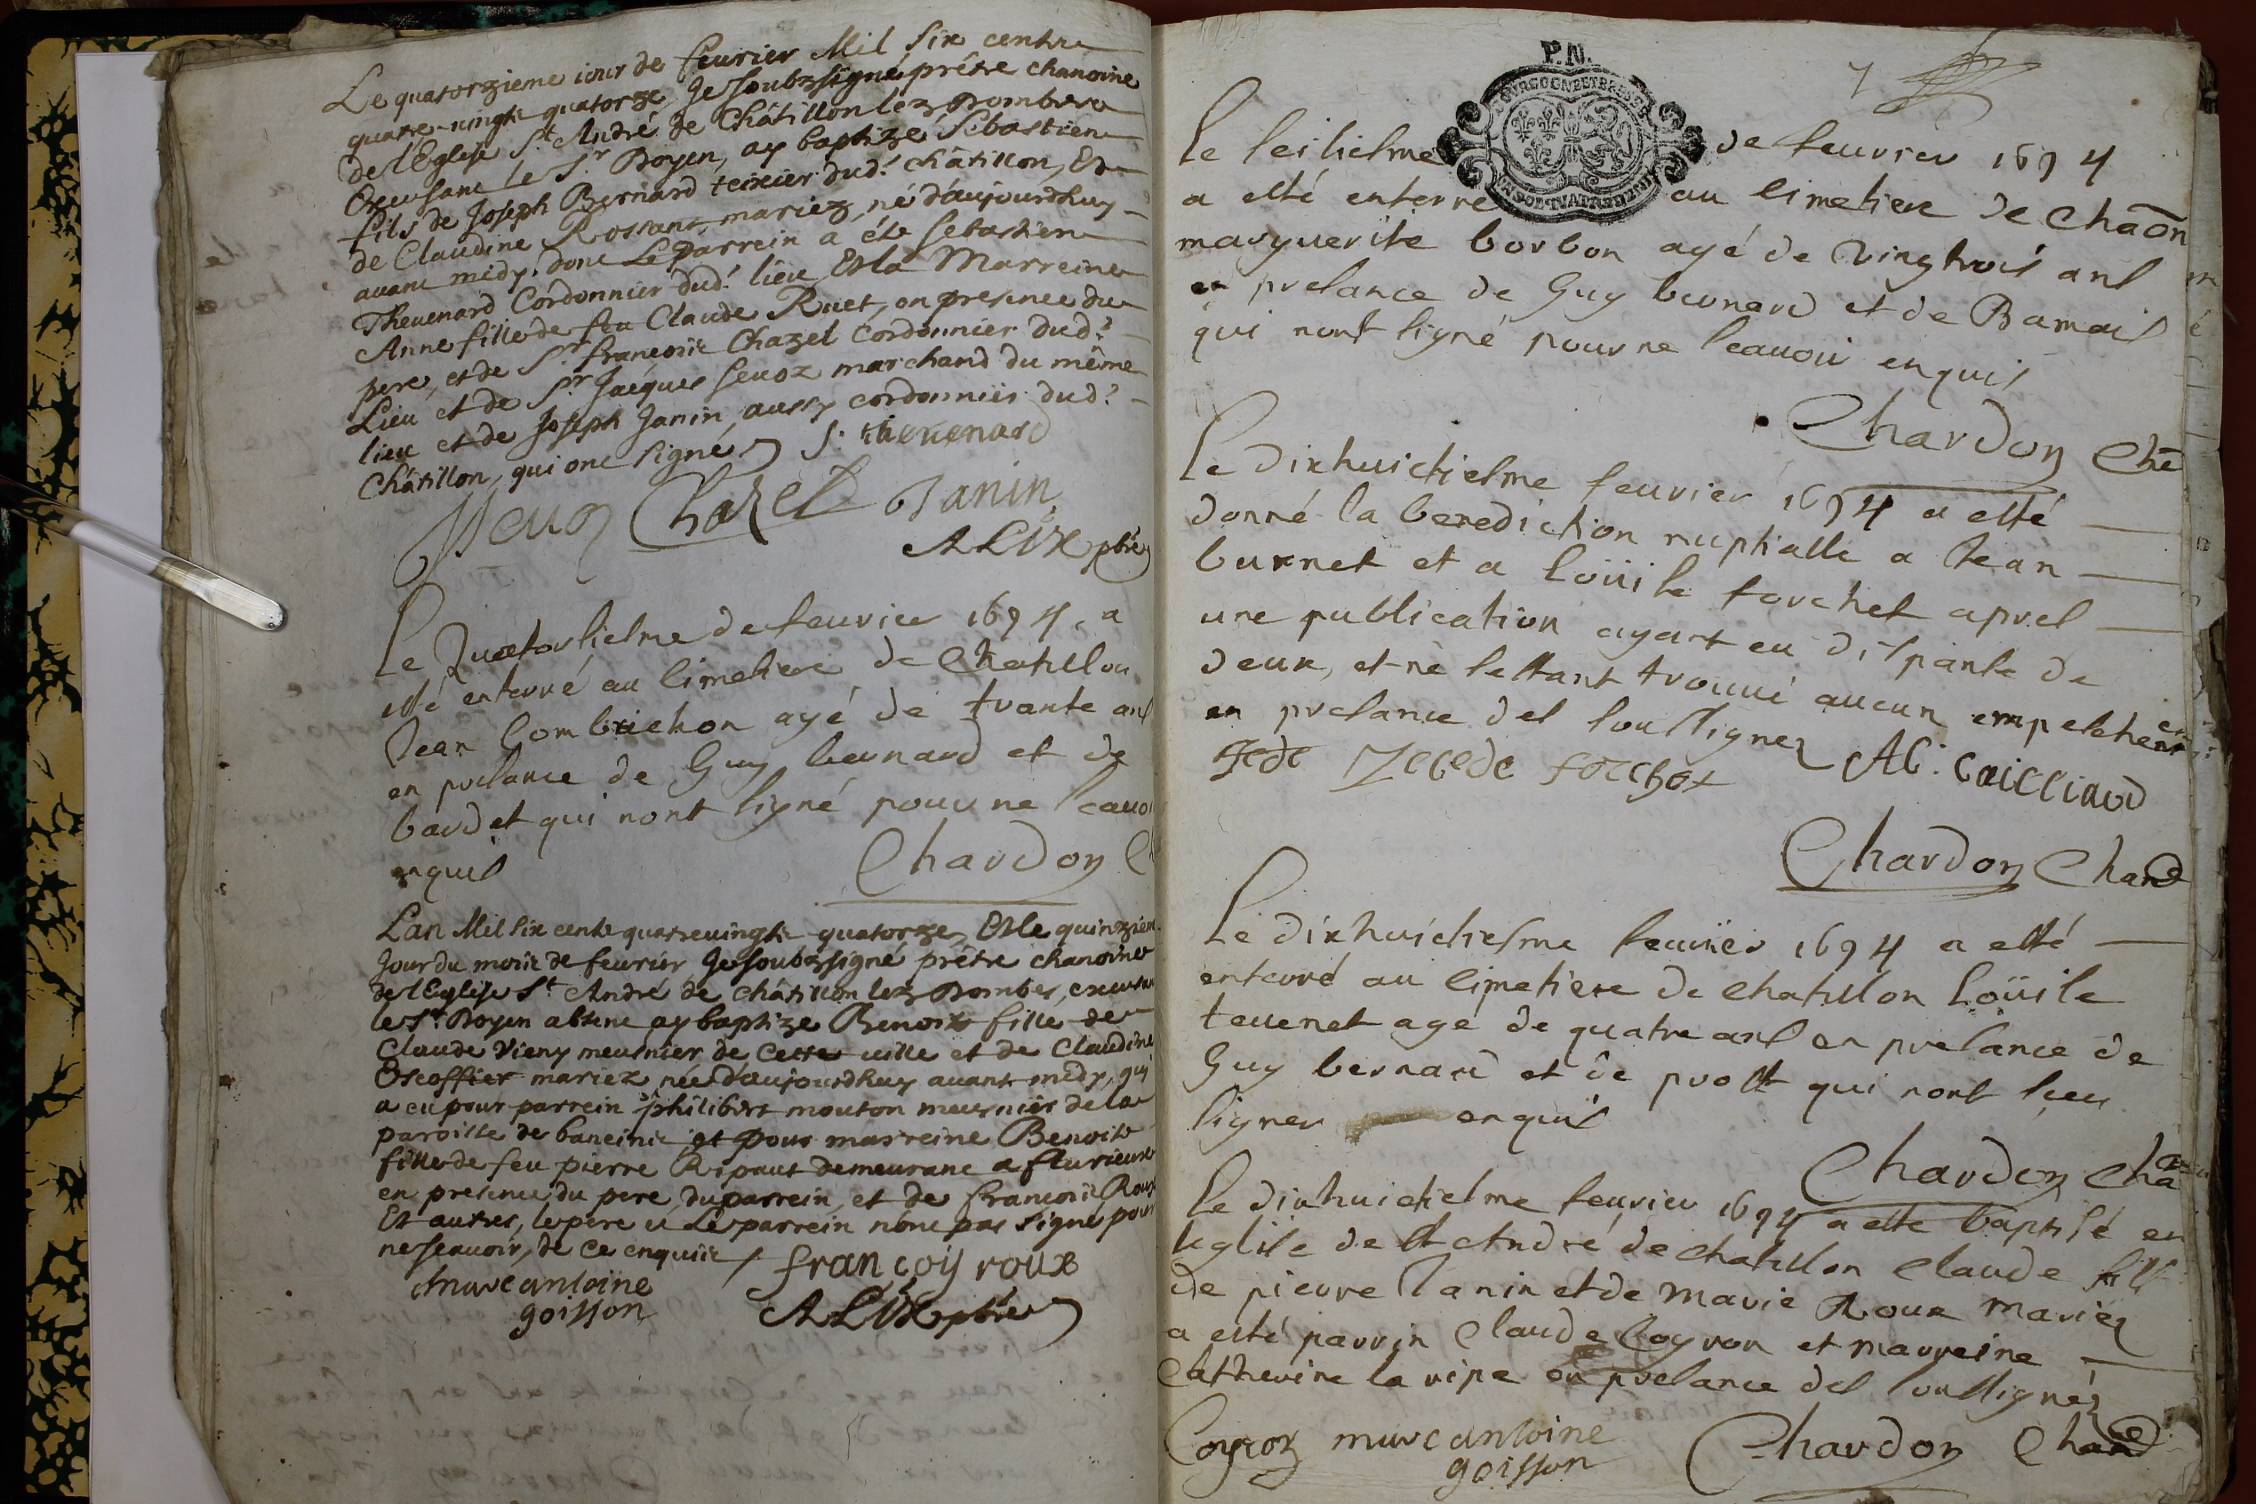 Le quatorzieme iour de feurier Mil Six cents
quatre-vingts quatorze Je Soubzsigné prétre chanoine
de l'Eglise St. André de Châtillon lez Dombes
Excusant le Sr. Doyen, ay baptizé Sebastien
fils de Joseph Bernard teixier dud.t châtillon, Et
de Claudine Rossant mariez, né d'aujourdhuy
auant midy. dont Le Parrein a éte Sebastien
Theuenard Cordonnier dud.t lieu Et la Marreine
Anne fille de feu Claude Ruet, en presence du
pere, et de Sr. françois Chazel Cordonnier dud.t
Lieu et de Sr. Jacques Seuoz marchand du même
lieu et de Joseph Janin, aussy cordonnier dud.t
Châtillon, qui ont signés S. theuenard
JSeuoz Chazel Janin
ALIX pbre
Le Quatorsiesme de feurier 1694, a
esté enterré au simetiere de Chatillon
Jean Combrichon agé de trante ans
en presance de Guy bernard et de
bardet qui nont signé pour ne scauoi
enquis Chardon
Lan Mil six cents quatreuingts quatorze, Et le quinziem
Jour du mois de feurier Je soubzsigné prétre chanoine
de l'Eglise St. André de châtillon lez Dombes, excusan
le Sr. Doyen absent ay baptize Benoite fille de
Claude Vieny meusnier de cette uille et de Claudine
Escoffier mariez, née d'aujourdhuy auant midy, qui
a eu pour parrein philibert mouton meusnier de la
paroisse de baneins et pour marreine Benoite
fille de feu pierre Ripaut demeurant a flurieux
en presence du pere, du parrein, et de François Roux
Et autres, le pere et Le parrein n'ont pas signé pour
ne scauoir, de ce enquis / françois roux
marc antoine
goisson ALIX pbre
P.N. 7
Le seisiesme de feurier 1694
a esté enterré au simetiere de chaōn
marguerite borbon agé de Vingtrois ans
en presance de Guy bernard et de Ramais
qui nont signé pour ne scauoir enquis
Chardon Chē
Le dixhuictiesme feurier 1694 a esté
donné la benediction nuptialle a Jean
burnet et a Loüise forchet apres
une publication ayant eu dispanse de
deux, et ne sestant trouué aucun empeschem
en presance des soussignez AC. Gailliard
Chardon Chane
Le dixhuictiesme feurier 1694 a esté
enterré au simetiere de chatillon Loüise
teuenet agé de quatre ans en presance de
Guy bernard et de prost qui nont sceu
signer enquis
Chardon Chā
Le dixhuictiesme feurier 1694 a esté baptisé en
leglise de St Andre de chatillon Claude fils
de pierre Janin et de Marie Roux mariez
a esté parrin Claude Coyron et marreine
Catherine la ripe en presance des soussignéz
Coyron marc antoine
goisson Chardon Chane